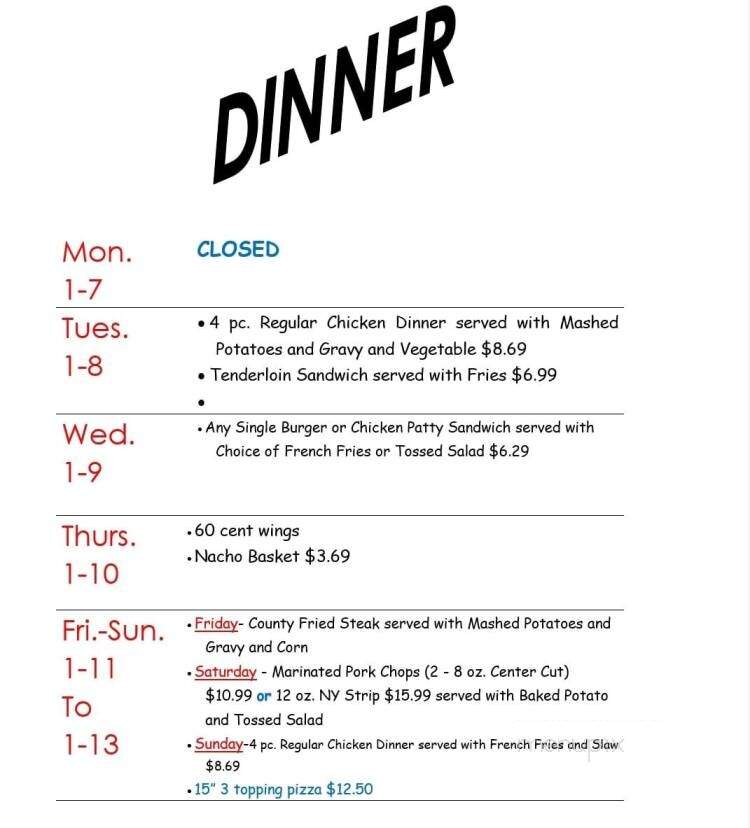 DINNER
Mon. CLOSED
1-7
Tues. • 4 pc. Regular Chicken Dinner served with Mashed
Potatoes and Gravy and Vegetable $8.69
1-8
• Tenderloin Sandwich served with Fries $6.99
•
Wed. • Any Single Burger or Chicken Patty Sandwich served with
Choice of French Fries or Tossed Salad $6.29
1-9
Thurs. • 60 cent wings
• Nacho Basket $3.69
1-10
Fri.-Sun. • Friday- County Fried Steak served with Mashed Potatoes and
Gravy and Corn
1-11 • Saturday - Marinated Pork Chops (2 - 8 oz. Center Cut)
To $10.99 or 12 oz. NY Strip $15.99 served with Baked Potato
and Tossed Salad
1-13 • Sunday-4 pc. Regular Chicken Dinner served with French Fries and Slaw
$8.69
• 15" 3 topping pizza $12.50